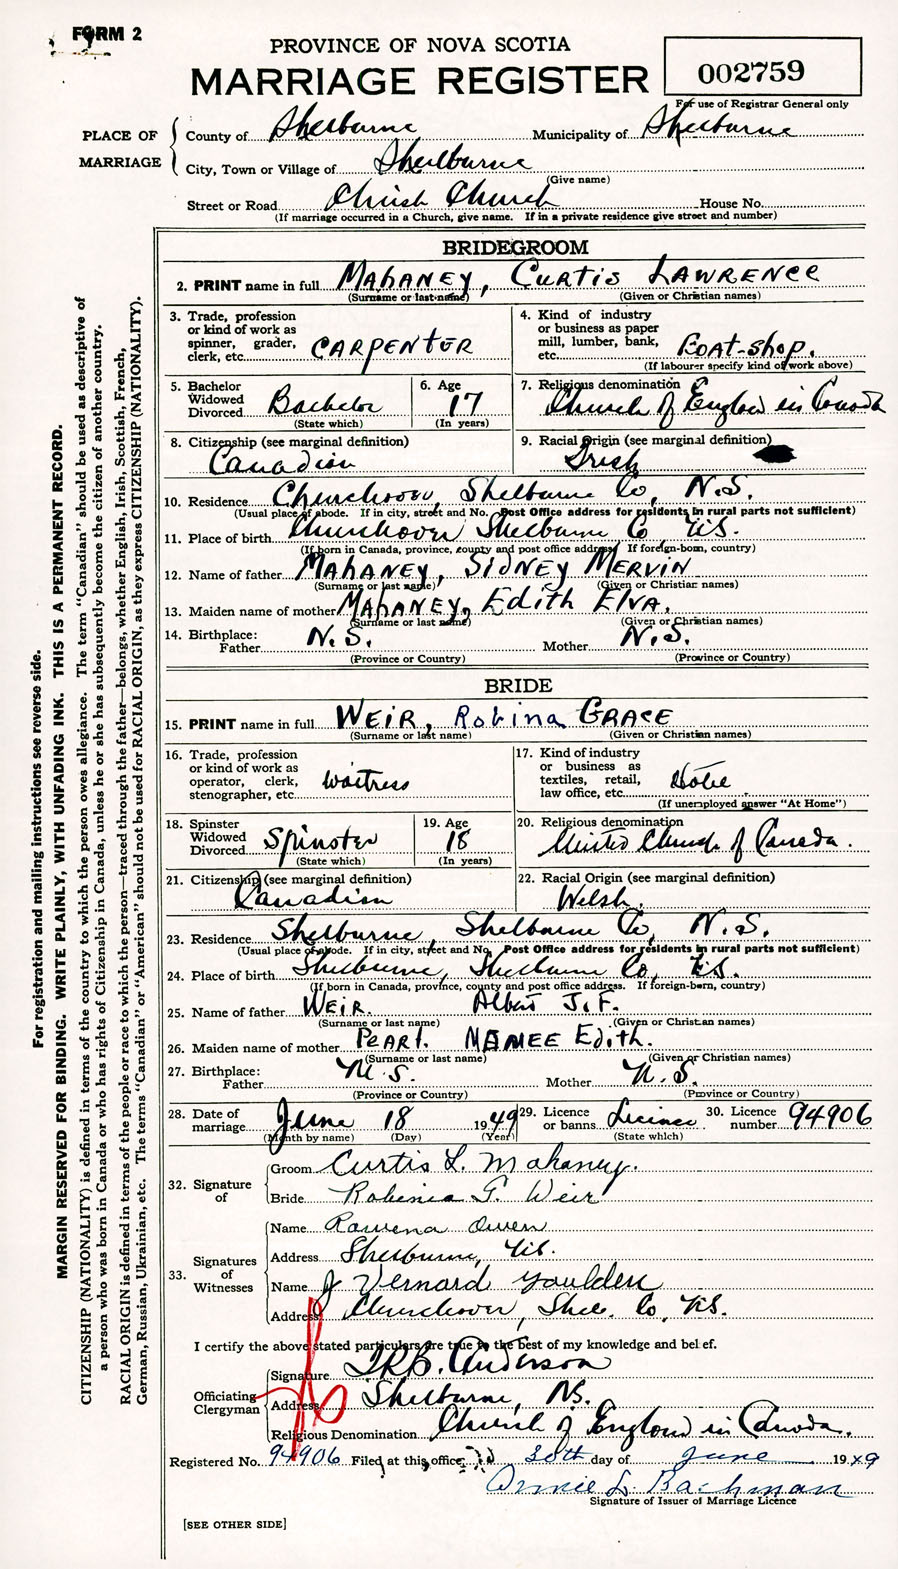 FORM 2
PROVINCE OF NOVA SCOTIA
MARRIAGE REGISTER
002759
For use of Registrar General only
PLACE OF MARRIAGE
County of Shelburne Municipality of Shelburne
City, Town or Village of Shelburne
(Give name)
Street or Road Christ Church House No.
(If marriage occurred in a Church, give name. If in a private residence give street and number)
BRIDEGROOM
2. PRINT name in full MAHANEY, CURTIS LAWRENCE
(Surname or last name) (Given or Christian names)
3. Trade, profession or kind of work as spinner, grader, clerk, etc. CARPENTER
4. Kind of industry or business as paper mill, lumber, bank, etc. BOAT-SHOP.
(If labourer specify kind of work above)
5. Bachelor Widowed Divorced Bachelor
(State which)
6. Age 17
(In years)
7. Religious denomination Church of England in Canada
8. Citizenship (see marginal definition) Canadian
9. Racial Origin (see marginal definition) Irish
10. Residence Churchover, Shelburne Co, N.S.
(Usual place of abode. If in city, street and No. Post Office address for residents in rural parts not sufficient)
11. Place of birth Churchover Shelburne Co N.S.
(If born in Canada, province, county and post office address. If foreign-born, country)
12. Name of father MAHANEY, SIDNEY MERVIN
(Surname or last name) (Given or Christian names)
13. Maiden name of mother MAHANEY, Edith ELVA.
(Surname or last name) (Given or Christian names)
14. Birthplace: Father N.S. Mother N.S.
(Province or Country) (Province or Country)
BRIDE
15. PRINT name in full WEIR, Robina GRACE
(Surname or last name) (Given or Christian names)
16. Trade, profession or kind of work as operator, clerk, stenographer, etc. Waitress
17. Kind of industry or business as textiles, retail, law office, etc. Hotel
(If unemployed answer "At Home")
18. Spinster Widowed Divorced Spinster
(State which)
19. Age 18
(In years)
20. Religious denomination United Church of Canada.
21. Citizenship (see marginal definition) Canadian
22. Racial Origin (see marginal definition) Welsh.
23. Residence Shelburne, Shelburne Co, N.S.
(Usual place of abode. If in city, street and No. Post Office address for residents in rural parts not sufficient)
24. Place of birth Shelburne, Shelburne Co, N.S.
(If born in Canada, province, county and post office address. If foreign-born, country)
25. Name of father WEIR. Albert J.F.
(Surname or last name) (Given or Christian names)
26. Maiden name of mother PEARL. MAMEE Edith.
(Surname or last name) (Given or Christian names)
27. Birthplace: Father N.S. Mother N.S.
(Province or Country) (Province or Country)
28. Date of marriage June 18 1949
(Month by name) (Day) (Year)
29. Licence or banns License
(State which)
30. Licence number 94906
32. Signature of
Groom Curtis L. Mahaney.
Bride Robinia G. Weir
33. Signatures of Witnesses
Name Rowena Owen
Address Shelburne, N.S.
Name J Vernard Goulden
Address Churchover, Shel. Co, N.S.
I certify the above stated particulars are true to the best of my knowledge and belief.
Officiating Clergyman
Signature T.R.B. Anderson
Address Shelburne, NS.
Religious Denomination Church of England in Canada.
Registered No. 94906 Filed at this office 30th day of June 1949
Annie L. Bachman
Signature of Issuer of Marriage Licence
[SEE OTHER SIDE]
For registration and mailing instructions see reverse side.
MARGIN RESERVED FOR BINDING. WRITE PLAINLY, WITH UNFADING INK. THIS IS A PERMANENT RECORD.
CITIZENSHIP (NATIONALITY) is defined in terms of the country to which the person owes allegiance. The term "Canadian" should be used as descriptive of
a person who was born in Canada or who has rights of Citizenship in Canada, unless he or she has subsequently become the citizen of another country.
RACIAL ORIGIN is defined in terms of the people or race to which the person—traced through the father—belongs, whether English, Irish, Scottish, French,
German, Russian, Ukrainian, etc. The terms "Canadian" or "American" should not be used for RACIAL ORIGIN, as they express CITIZENSHIP (NATIONALITY).